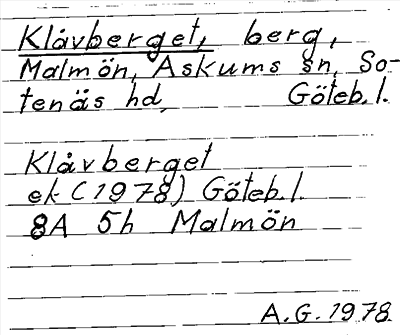 Klåvberget, berg,
Malmön, Askums sn, So-
tenäs hd, Göteb.l.
Klåvberget
ek (1978) Göteb.l.
8A 5h Malmön
A.G. 1978